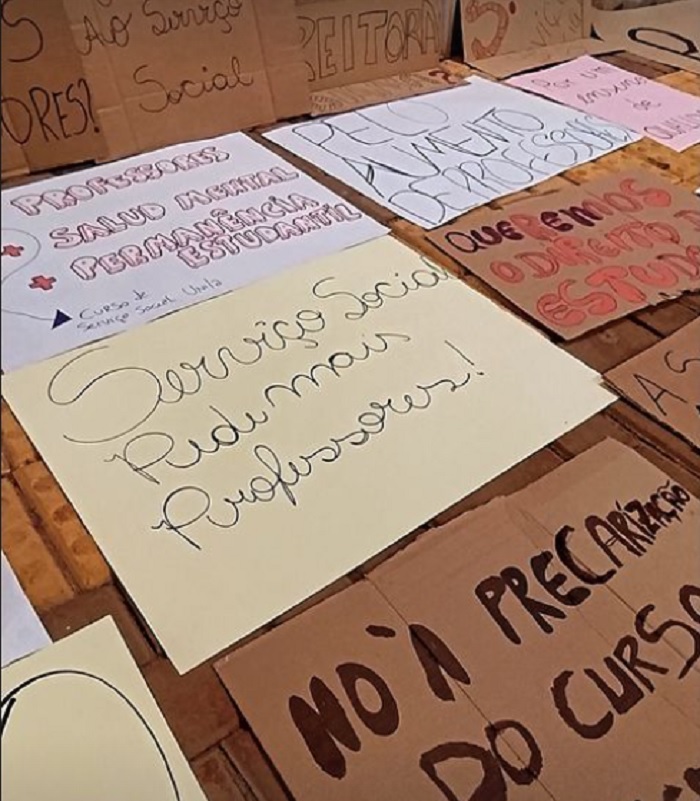 S
AO Serviço
Social
ORES?
REITORA
?
Por um
ensino
de
PELO
AUMENTO
DE PROFESSORES
PROFESSORES
SALUD MENTAL
PERMANÊNCIA
ESTUDANTIL
CURSO de
Serviço Social Unila
QUEREMOS
O DIREITO D
ESTUDA
Serviço Social
Pede mais
Professores!
AS
NO À PRECARIZAÇÃO
DO CURSO